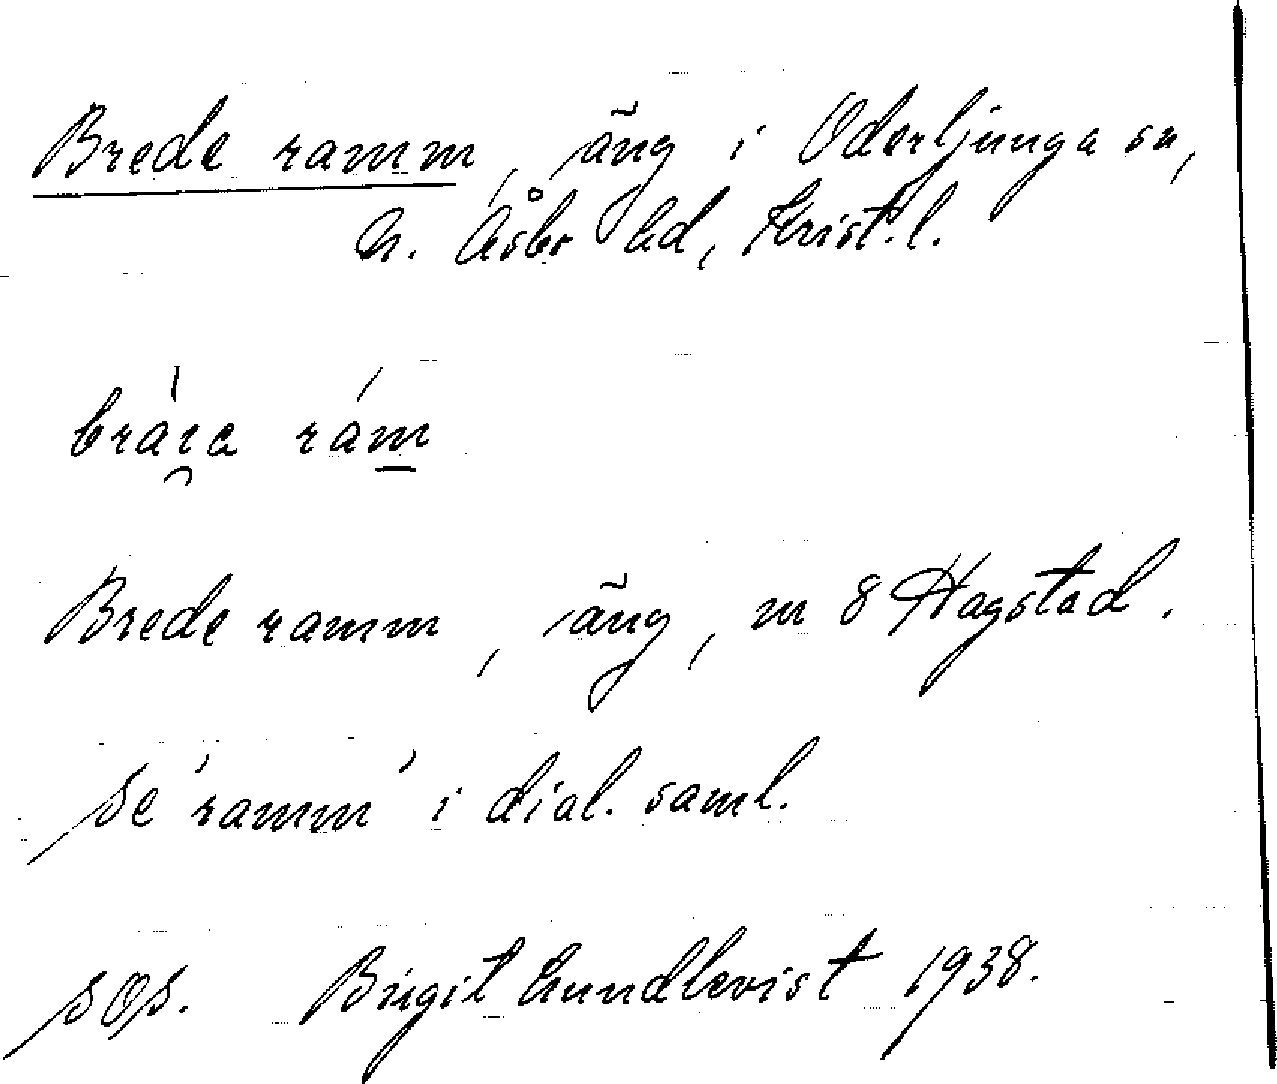 Brede ramm, äng i Oderljunga sn,
N. Åsbo hd, Krist. l.
brára rám
Brede ramm, äng, m 8 Hagstad.
Se 'ramm' i dial. saml.
SOS. Birgit Lundkvist 1938.